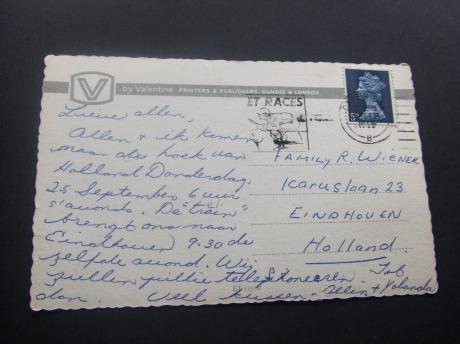 by Valentine PRINTERS & PUBLISHERS, DUNDEE & LONDON
ET RACES
5D
Lieve allen,
Allen & ik komen
naar de hoek van
Holland Donderdag
25 September 6 uur
s'avonds. De "train"
brengt ons naar
Eindhoven 9.30 de
zelfde avond. Wij
zullen jullie telephoneeren
dan. Veel kussen - & Yolanda
FAMILY R. WIENER
ICARUSLAAN 23
EINDHOVEN
Holland.